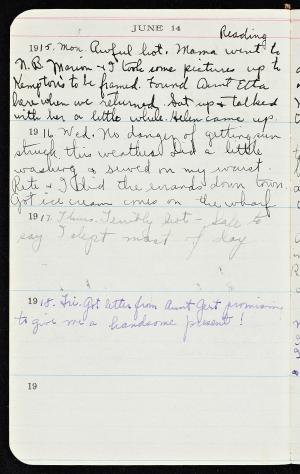 JUNE 14
Reading
1915. Mon. Awful hot. Mama went to
N.R. Marion & I took some pictures up to
Kempton's to be framed. Found Aunt Etta
here when we returned. Sat up & talked
with her a little while. Helen came up.
1916 Wed. No danger of getting sun
struck this weather. Did a little
washing & sewed on my waist.
Rete & I did the errands down town.
Got ice cream cones on the wharf
1917. Thurs. Terribly hot - safe to
say I slept most of day
1918. Fri. Got letter from Aunt Gert promising
to give me a handsome present!
19